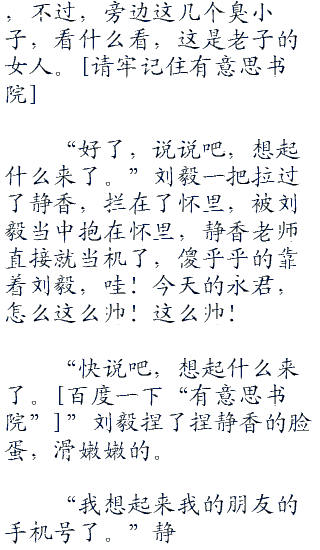 ，不过，旁边这几个臭小
子，看什么看，这是老子的
女人。[请牢记住有意思书
院]
“好了，说说吧，想起
什么来了。”刘毅一把拉过
了静香，拦在了怀里，被刘
毅当中抱在怀里，静香老师
直接就当机了，傻乎乎的靠
着刘毅，哇！今天的永君，
怎么这么帅！这么帅！
“快说吧，想起什么来
了。[百度一下“有意思书
院”]”刘毅捏了捏静香的脸
蛋，滑嫩嫩的。
“我想起来我的朋友的
手机号了。”静